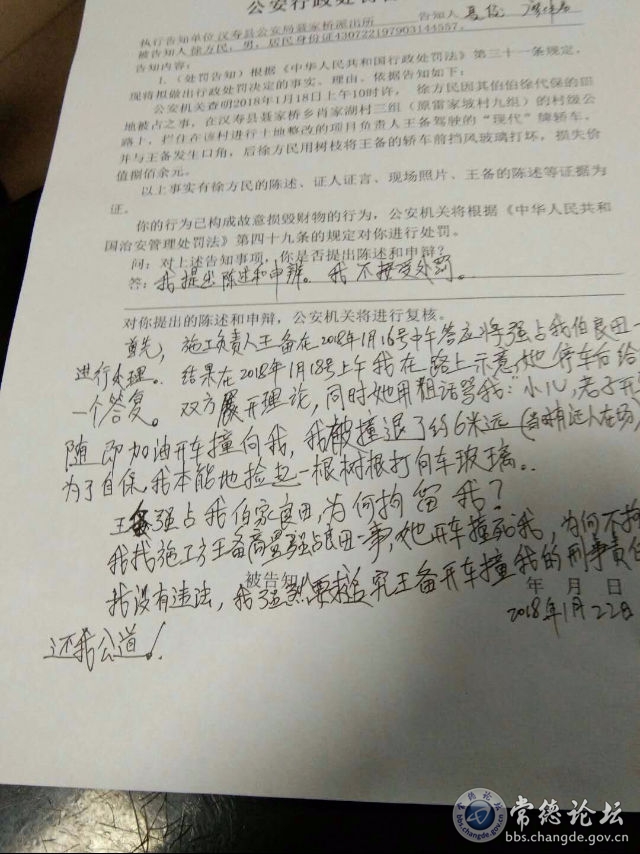 公安行政处罚告
执行告知单位 汉寿县公安局聂家桥派出所 告知人
被告知人徐方民，男，居民身份证430722197903144557.
告知内容：
1.（处罚告知）根据《中华人民共和国行政处罚法》第三十一条规定，
现将拟做出行政处罚决定的事实、理由、依据告知如下：
公安机关查明2018年1月18日上午10时许， 徐方民因其伯伯徐代保的田
地被占之事，在汉寿县聂家桥乡肖家湖村三组（原雷家坡村九组）的村级公
路上，拦住在该村进行土地整改的项目负责人王备驾驶的“现代”牌轿车，
并与王备发生口角，后徐方民用树枝将王备的轿车前挡风玻璃打坏，损失价
值捌佰余元。
以上事实有徐方民的陈述、证人证言、现场照片、王备的陈述等证据为
证。
你的行为已构成故意损毁财物的行为，公安机关将根据《中华人民共和
国治安管理处罚法》第四十九条的规定对你进行处罚。
问：对上述告知事项，你是否提出陈述和申辩？
答：我提出陈述和申辩。我不接受处罚。
对你提出的陈述和申辩，公安机关将进行复核。
首先，施工负责人王备在2018年1月16号中午答应将强占我伯良田一
进行处理。结果在2018年1月18号上午我在路上示意她停车后给
一个答复。双方展开理论，同时她用粗话骂我：“小儿，老子开
随即加油开车撞向我，我被撞退了约6米远（当时有证人在场）
为了自保，我本能地捡起一根树根打向车玻璃。
王备强占我伯家良田，为何拘留我？
我找施工方王备商量强占良田一事，她开车撞死我，为何不拘
我没有违法，我强烈要求追究王备开车撞我的刑事责任
被告知人 年 月 日
2018年1月22日
还我公道！
常德论坛
bbs.changde.gov.cn